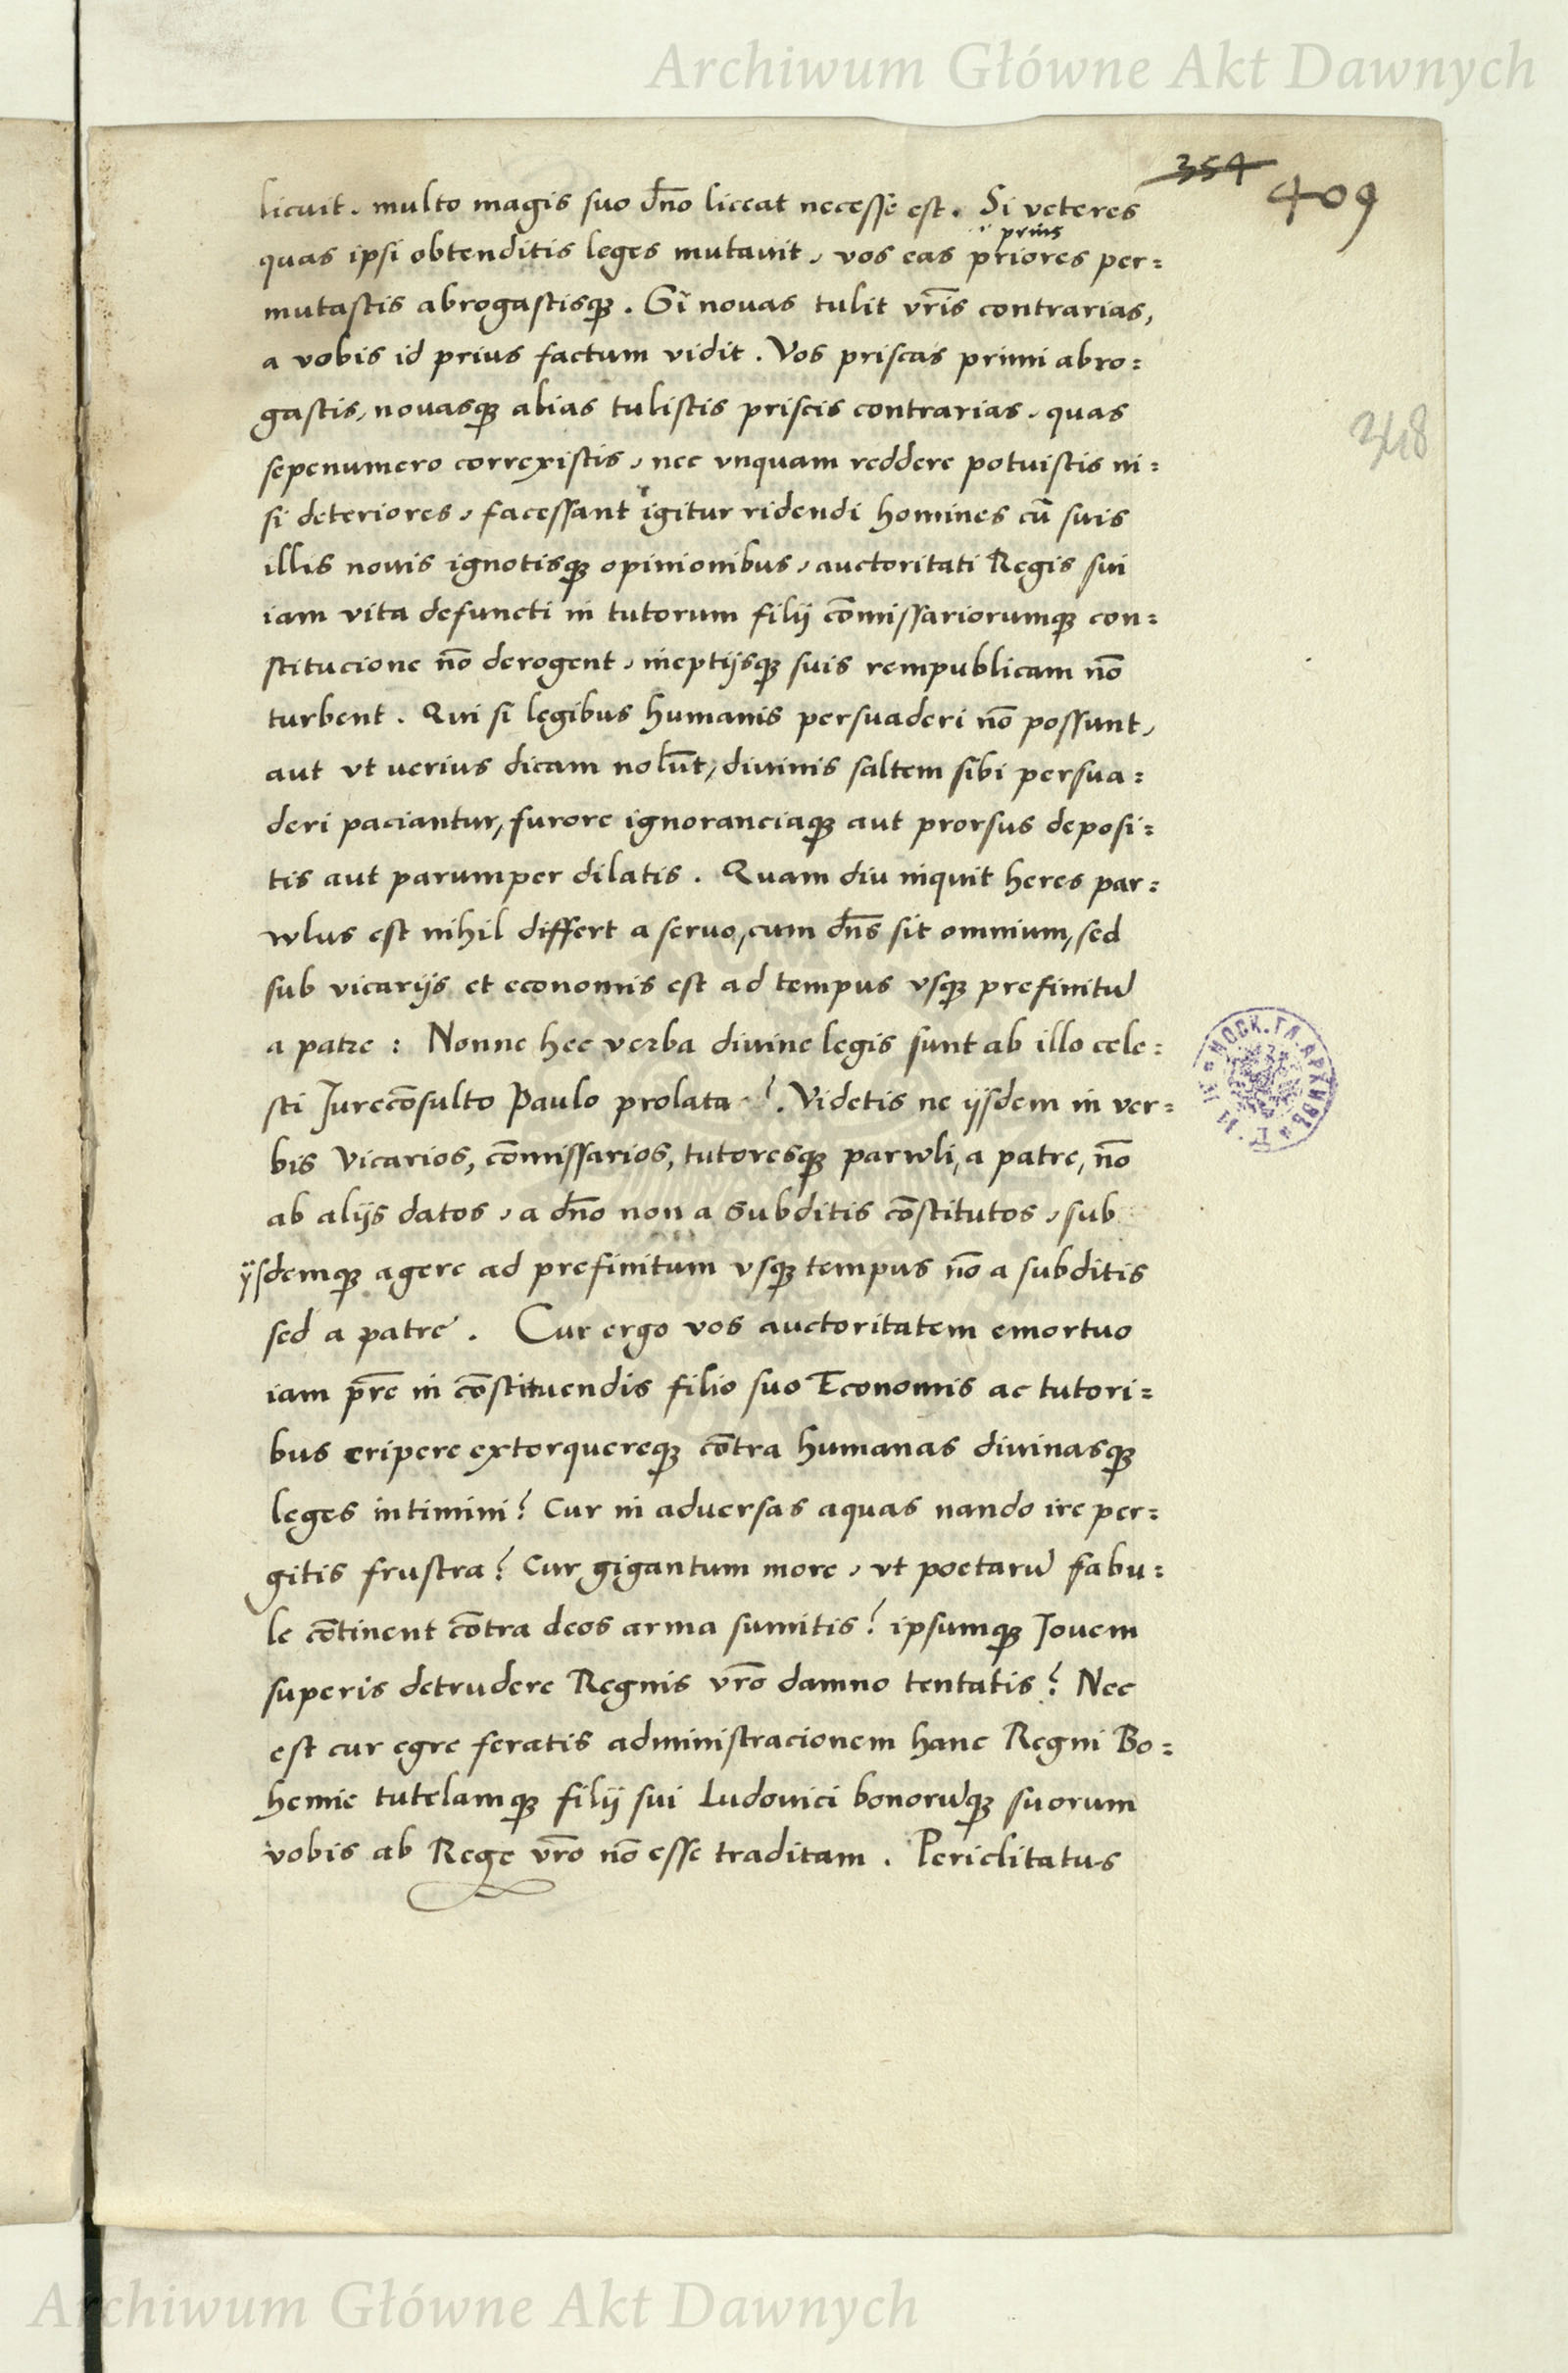 Archiwum Główne Akt Dawnych
354 409
licuit. multo magis suo dño liceat necesse est. Si veteres
prius
quas ipsi obtenditis leges mutauit, vos eas priores per=
mutastis abrogastisqꝫ. Si nouas tulit vr̃is contrarias,
a vobis id prius factum vidit. Vos priscas primi abro=
gastis, nouasqꝫ alias tulistis priscis contrarias, quas
348
sepenumero correxistis, nec vnquam reddere potuistis ni=
si deteriores, facessant igitur ridendi homines cũ suis
illis nouis ignotisqꝫ opinionibus, auctoritati Regis sui
iam vita defuncti in tutorum filij com̃issariorumqꝫ con=
stitucione nõ derogent, ineptijsqꝫ suis rempublicam nõ
turbent. Qui si legibus humanis persuaderi nõ possunt,
aut vt uerius dicam nolũt, diuinis saltem sibi persua=
deri paciantur, furore ignoranciaqꝫ aut prorsus deposi=
tis aut parumper dilatis. Quam diu inquit heres par=
wlus est nihil differt a seruo, cum dñs sit omnium, sed
sub vicarijs et economis est ad tempus vsqꝫ prefinitũ
a patre: Nonne hec verba diuine legis sunt ab illo cele=
sti Jurecõsulto Paulo prolata?. Videtis ne ijsdem in ver=
bis Vicarios, com̃issarios, tutoresqꝫ parwli, a patre, nõ
ab alijs datos, a dño non a subditis cõstitutos, sub
ijsdemqꝫ agere ad prefinitum vsqꝫ tempus nõ a subditis
sed a patre. Cur ergo vos auctoritatem emortuo
iam pr̃e in cõstituendis filio suo Economis ac tutori=
bus eripere extorquereqꝫ cõtra humanas diuinasqꝫ
leges intimini? Cur in aduersas aquas nando ire per=
gitis frustra? Cur gigantum more, vt poetarũ fabu=
le cõtinent cõtra deos arma sumitis? ipsumqꝫ Jouem
superis detrudere Regnis vr̃o damno tentatis? Nec
est cur egre feratis administracionem hanc Regni Bo=
hemie tutelamqꝫ filij sui Ludouici bonorũqꝫ suorum
vobis ab Rege vr̃o nõ esse traditam. Periclitatus
Archiwum Główne Akt Dawnych